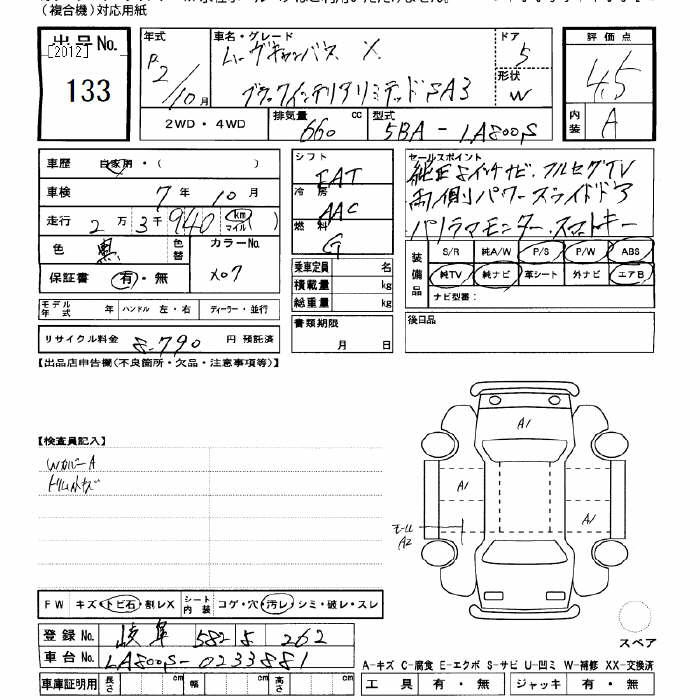 （複合機）対応用紙
出品No.
[2012]
133
年式
R2/10月
車名・グレード
ムーヴキャンバス X
ブラックインテリアリミテッドSA3
ドア
5
形状
W
評価点
4.5
内装
A
2WD・4WD
排気量
660 cc
型式
5BA-LA800S
車歴 自家用・( )
車検 7年10月
走行 2万3千940 km マイル( )
色 黒 色替
カラーNo. X07
保証書 有・無
モデル年式 年 ハンドル 左・右 ディーラー・並行
リサイクル料金 8-790 円 預託済
シフト
IAT
冷房
AAC
燃料
G
乗車定員 名
積載量 kg
総重量 kg
書類期限
月 日
セールスポイント
純正8インチナビ、フルセグTV
両側パワースライドドア
パノラマモニター、スマートキー
装備品
S/R 純A/W P/S P/W ABS
純TV 純ナビ 革シート 外ナビ エアB
ナビ型番：
後日品
【出品店申告欄(不良箇所・欠品・注意事項等)】
【検査員記入】
Wカバー A
A1
A1
A1
A2
スペア
FW キズ・トビ石・割レX シート内装 コゲ・穴・汚レ・シミ・破レ・スレ
登録No. 岐阜 582 262
車台No. LA800S-0233881
車庫証明用 長さ cm 幅 cm 高さ cm
A-キズ C-腐食 E-エクボ S-サビ U-凹ミ W-補修 XX-交換済
工具 有・無 ジャッキ 有・無